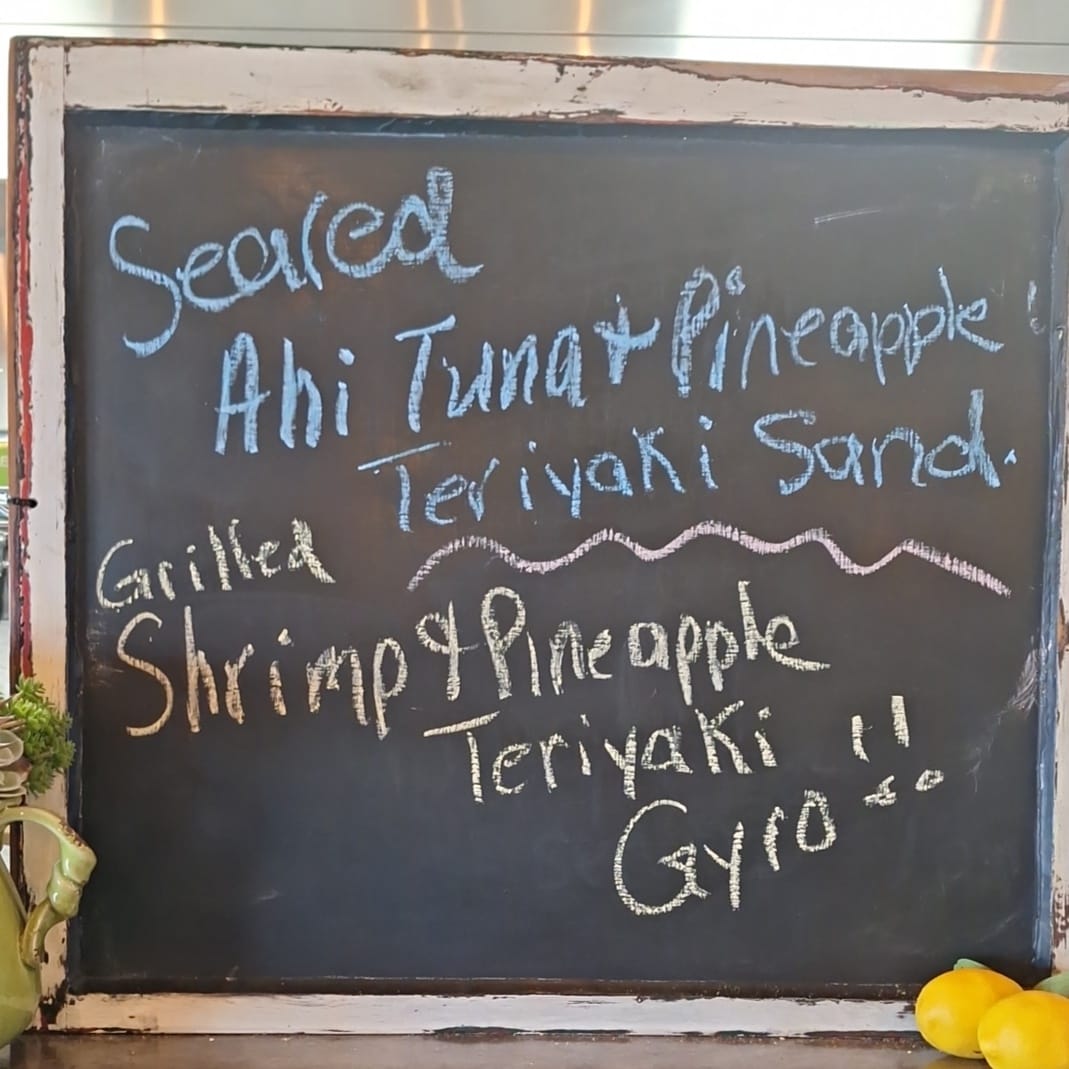 Seared
Ahi Tuna + Pineapple
Teriyaki Sand.
Grilled
Shrimp & Pineapple
Teriyaki
Gyro !!